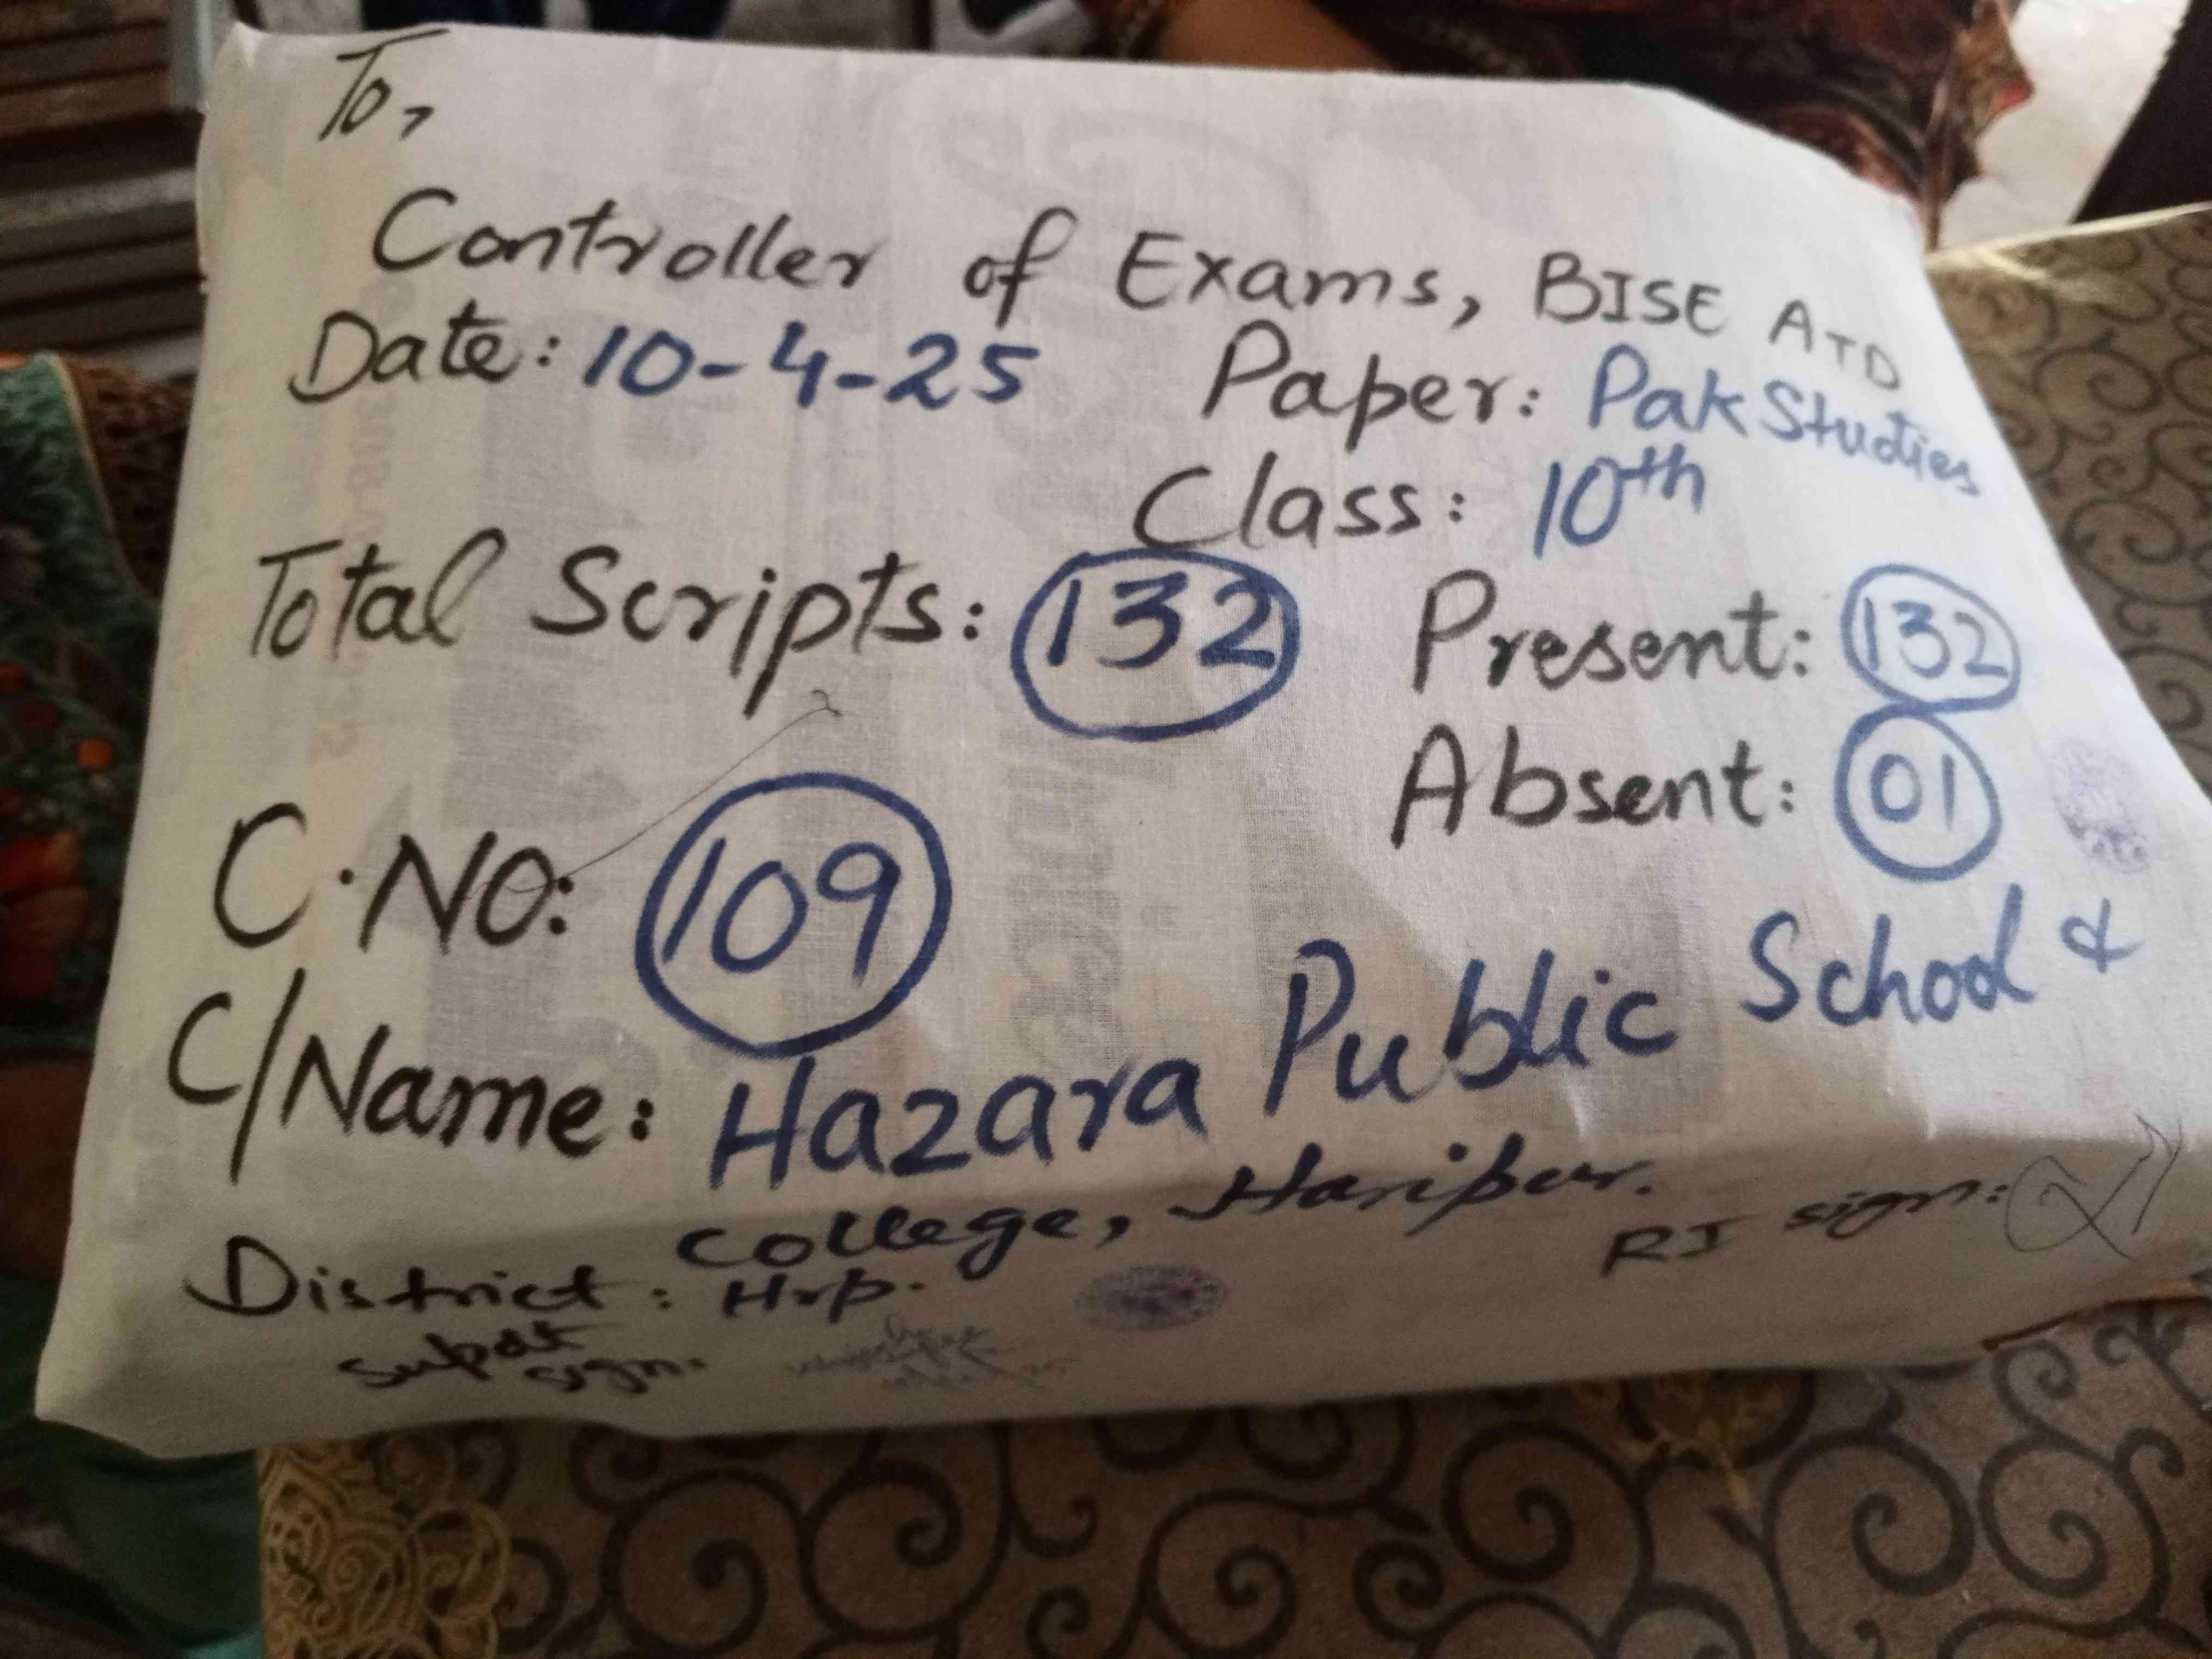 To,
Controller of Exams, BISE ATD
Date: 10-4-25 Paper: Pak Studies
Class: 10th
Total Scripts: 132 Present: 132
Absent: 01
C.NO: 109
C/Name: Hazara Public School &
College, Haripur.
District: Hrp. RI sign:
Supdt
sign: